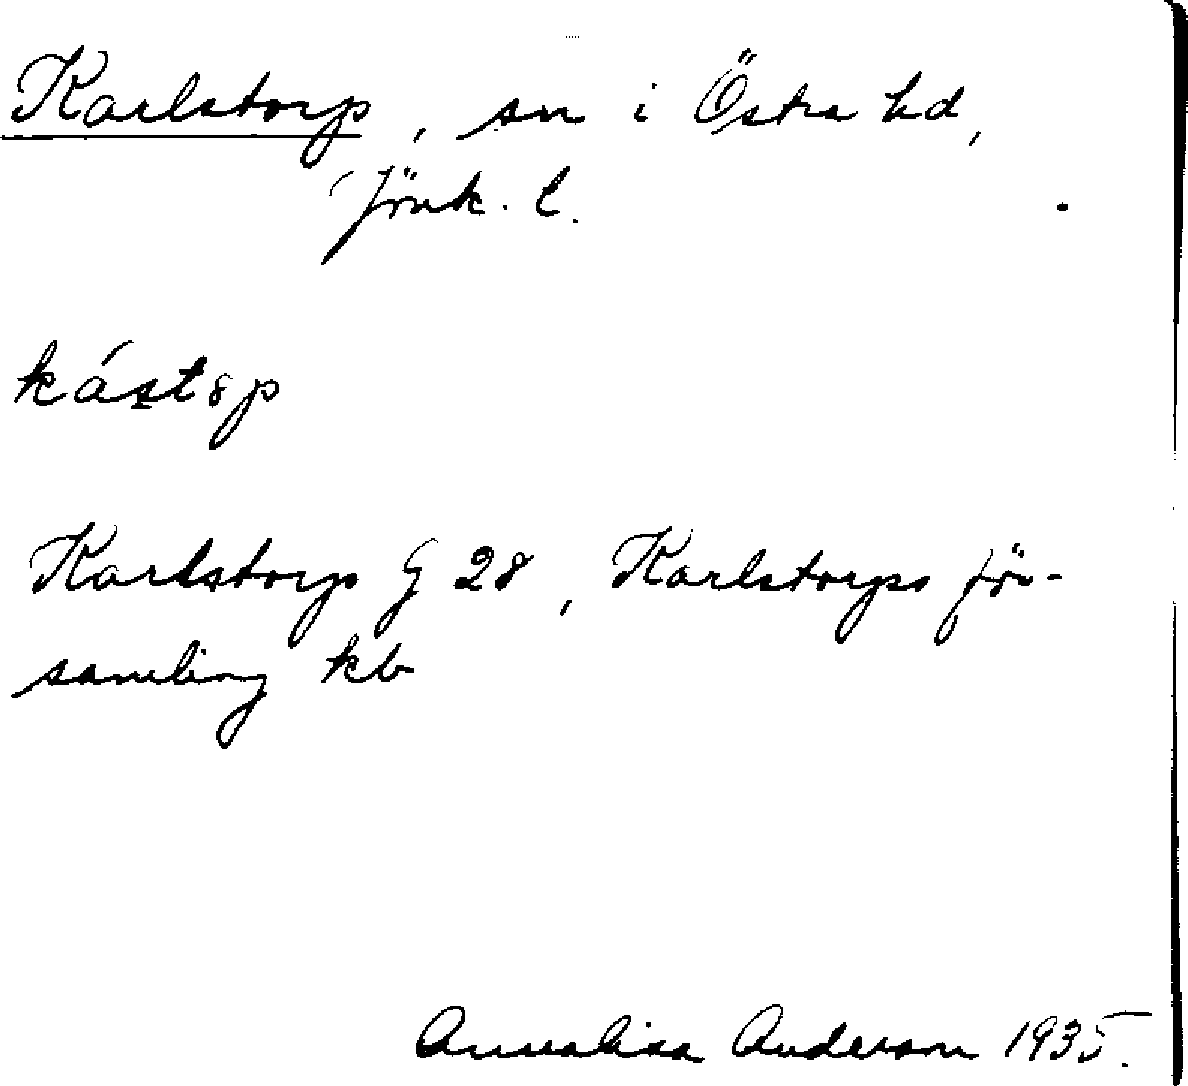 Karlstorp, sn i Östra hd,
Jönk. l.
kástsp
Karlstorp G 28, Karlstorps för-
samling kb
Annalisa Anderson 1935.